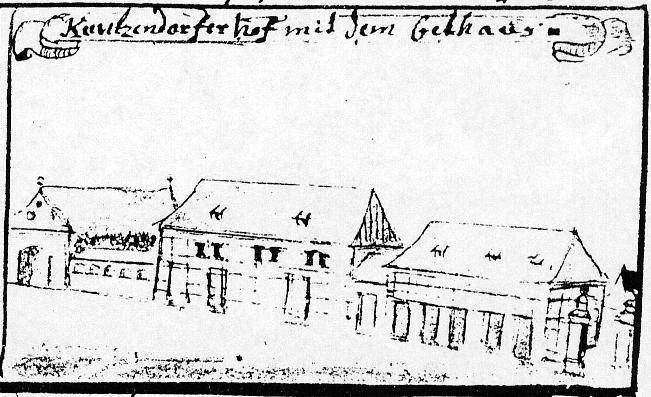 Kreutzendorfer hof mit dem Bekhaus